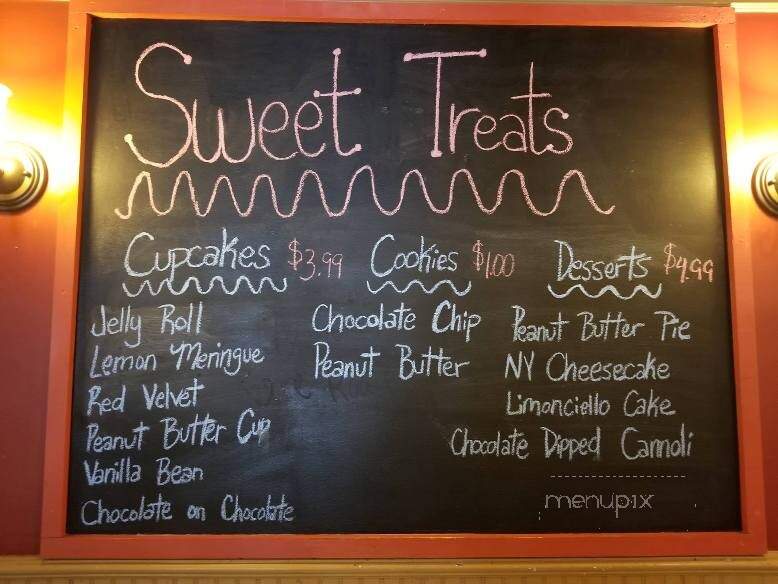 Sweet Treats
Cupcakes $3.99
Jelly Roll
Lemon Meringue
Red Velvet
Peanut Butter Cup
Vanilla Bean
Chocolate on Chocolate
Cookies $1.00
Chocolate Chip
Peanut Butter
Desserts $4.99
Peanut Butter Pie
NY Cheesecake
Limonciello Cake
Chocolate Dipped Cannoli
menupix